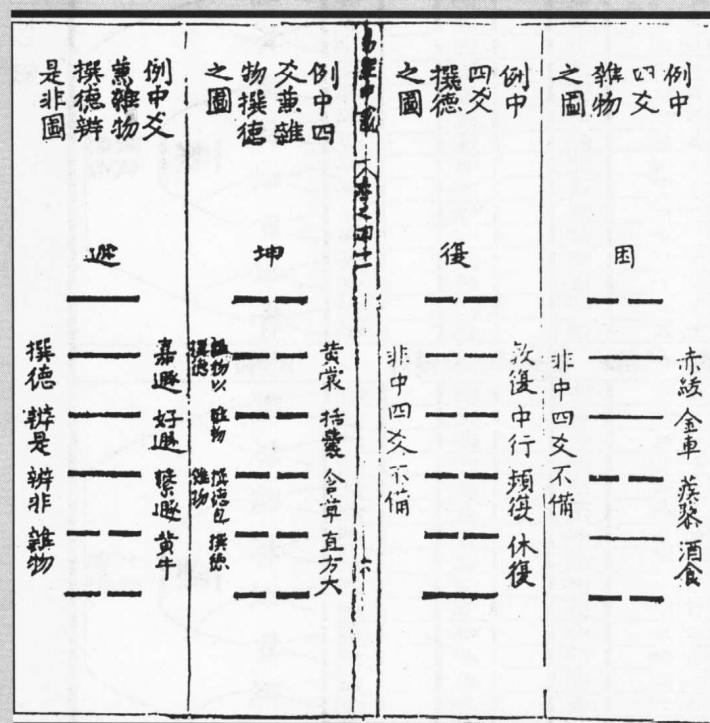 例中
四爻
雜物
之圖
困
赤紱
金車
蒺藜
酒食
非中四爻不備
例中
四爻
撰德
之圖
復
敦復
中行
頻復
休復
非中四爻不備
例中四
爻兼雜
物撰德
之圖
坤
黃裳
括囊
含章
直方大
雜物以
撰德
雜物
撰德
撰德
雜物
例中爻
兼雜物
撰德辨
是非圖
遯
嘉遯
好遯
繫遯
黃牛
撰德
辨是
辨非
雜物